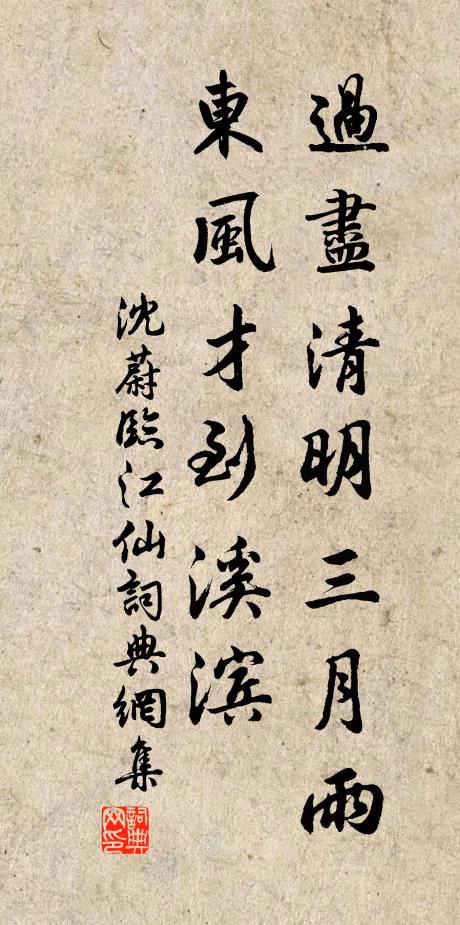 過盡清明三月雨
東風才到溪滨
沈蔚臨江仙詞典網集
詞典
网印